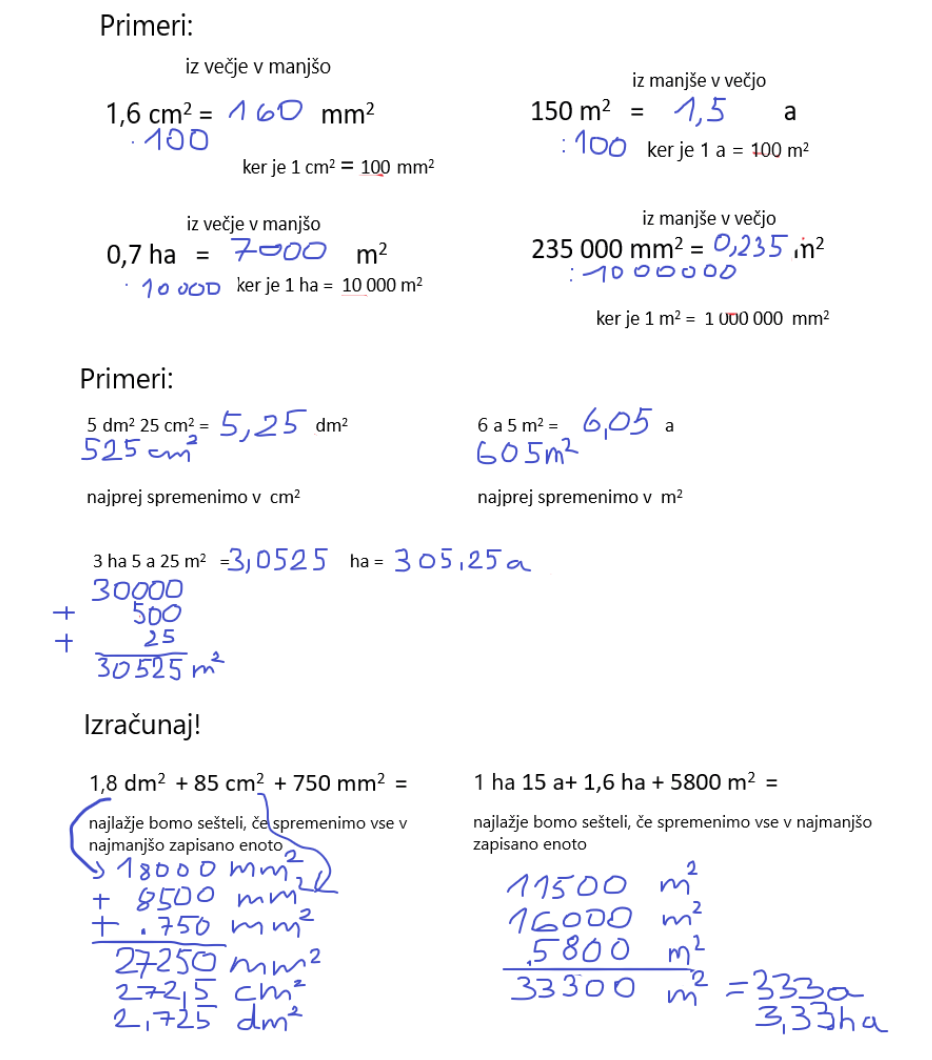 Primeri:
iz večje v manjšo
1,6 cm² = 160 mm²
· 100
ker je 1 cm² = 100 mm²
iz manjše v večjo
150 m² = 1,5 a
: 100 ker je 1 a = 100 m²
iz večje v manjšo
0,7 ha = 7000 m²
· 10 000 ker je 1 ha = 10 000 m²
iz manjše v večjo
235 000 mm² = 0,235 m²
: 1000000
ker je 1 m² = 1 000 000 mm²
Primeri:
5 dm² 25 cm² = 5,25 dm²
525 cm²
najprej spremenimo v cm²
6 a 5 m² = 6,05 a
605 m²
najprej spremenimo v m²
3 ha 5 a 25 m² = 3,0525 ha = 305,25 a
30000
+ 500
+ 25
30525 m²
Izračunaj!
1,8 dm² + 85 cm² + 750 mm² =
najlažje bomo sešteli, če spremenimo vse v
najmanjšo zapisano enoto
18000 mm²
+ 8500 mm²
+ .750 mm²
27250 mm²
272,5 cm²
2,725 dm²
1 ha 15 a+ 1,6 ha + 5800 m² =
najlažje bomo sešteli, če spremenimo vse v najmanjšo
zapisano enoto
11500 m²
16000 m²
.5800 m²
33300 m² = 333a
3,33ha